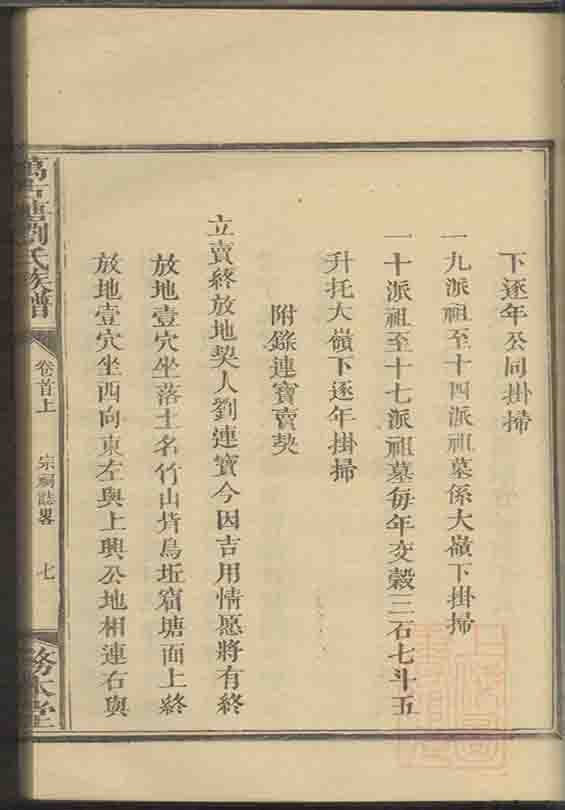 下逐年公同掛掃
一九派祖至十四派祖墓係大嶺下掛掃
一十派祖至十七派祖墓每年交穀三石七斗五
升托大嶺下逐年掛掃
附錄連寶賣契
立賣終放地契人劉連寶今因吉用情愿將有終
放地壹穴坐落土名竹山背鳥坵窟塘面上終
放地壹穴坐西向東左與上興公地相連右與
劉氏族譜
卷首上
宗祠誌畧
七
務本堂